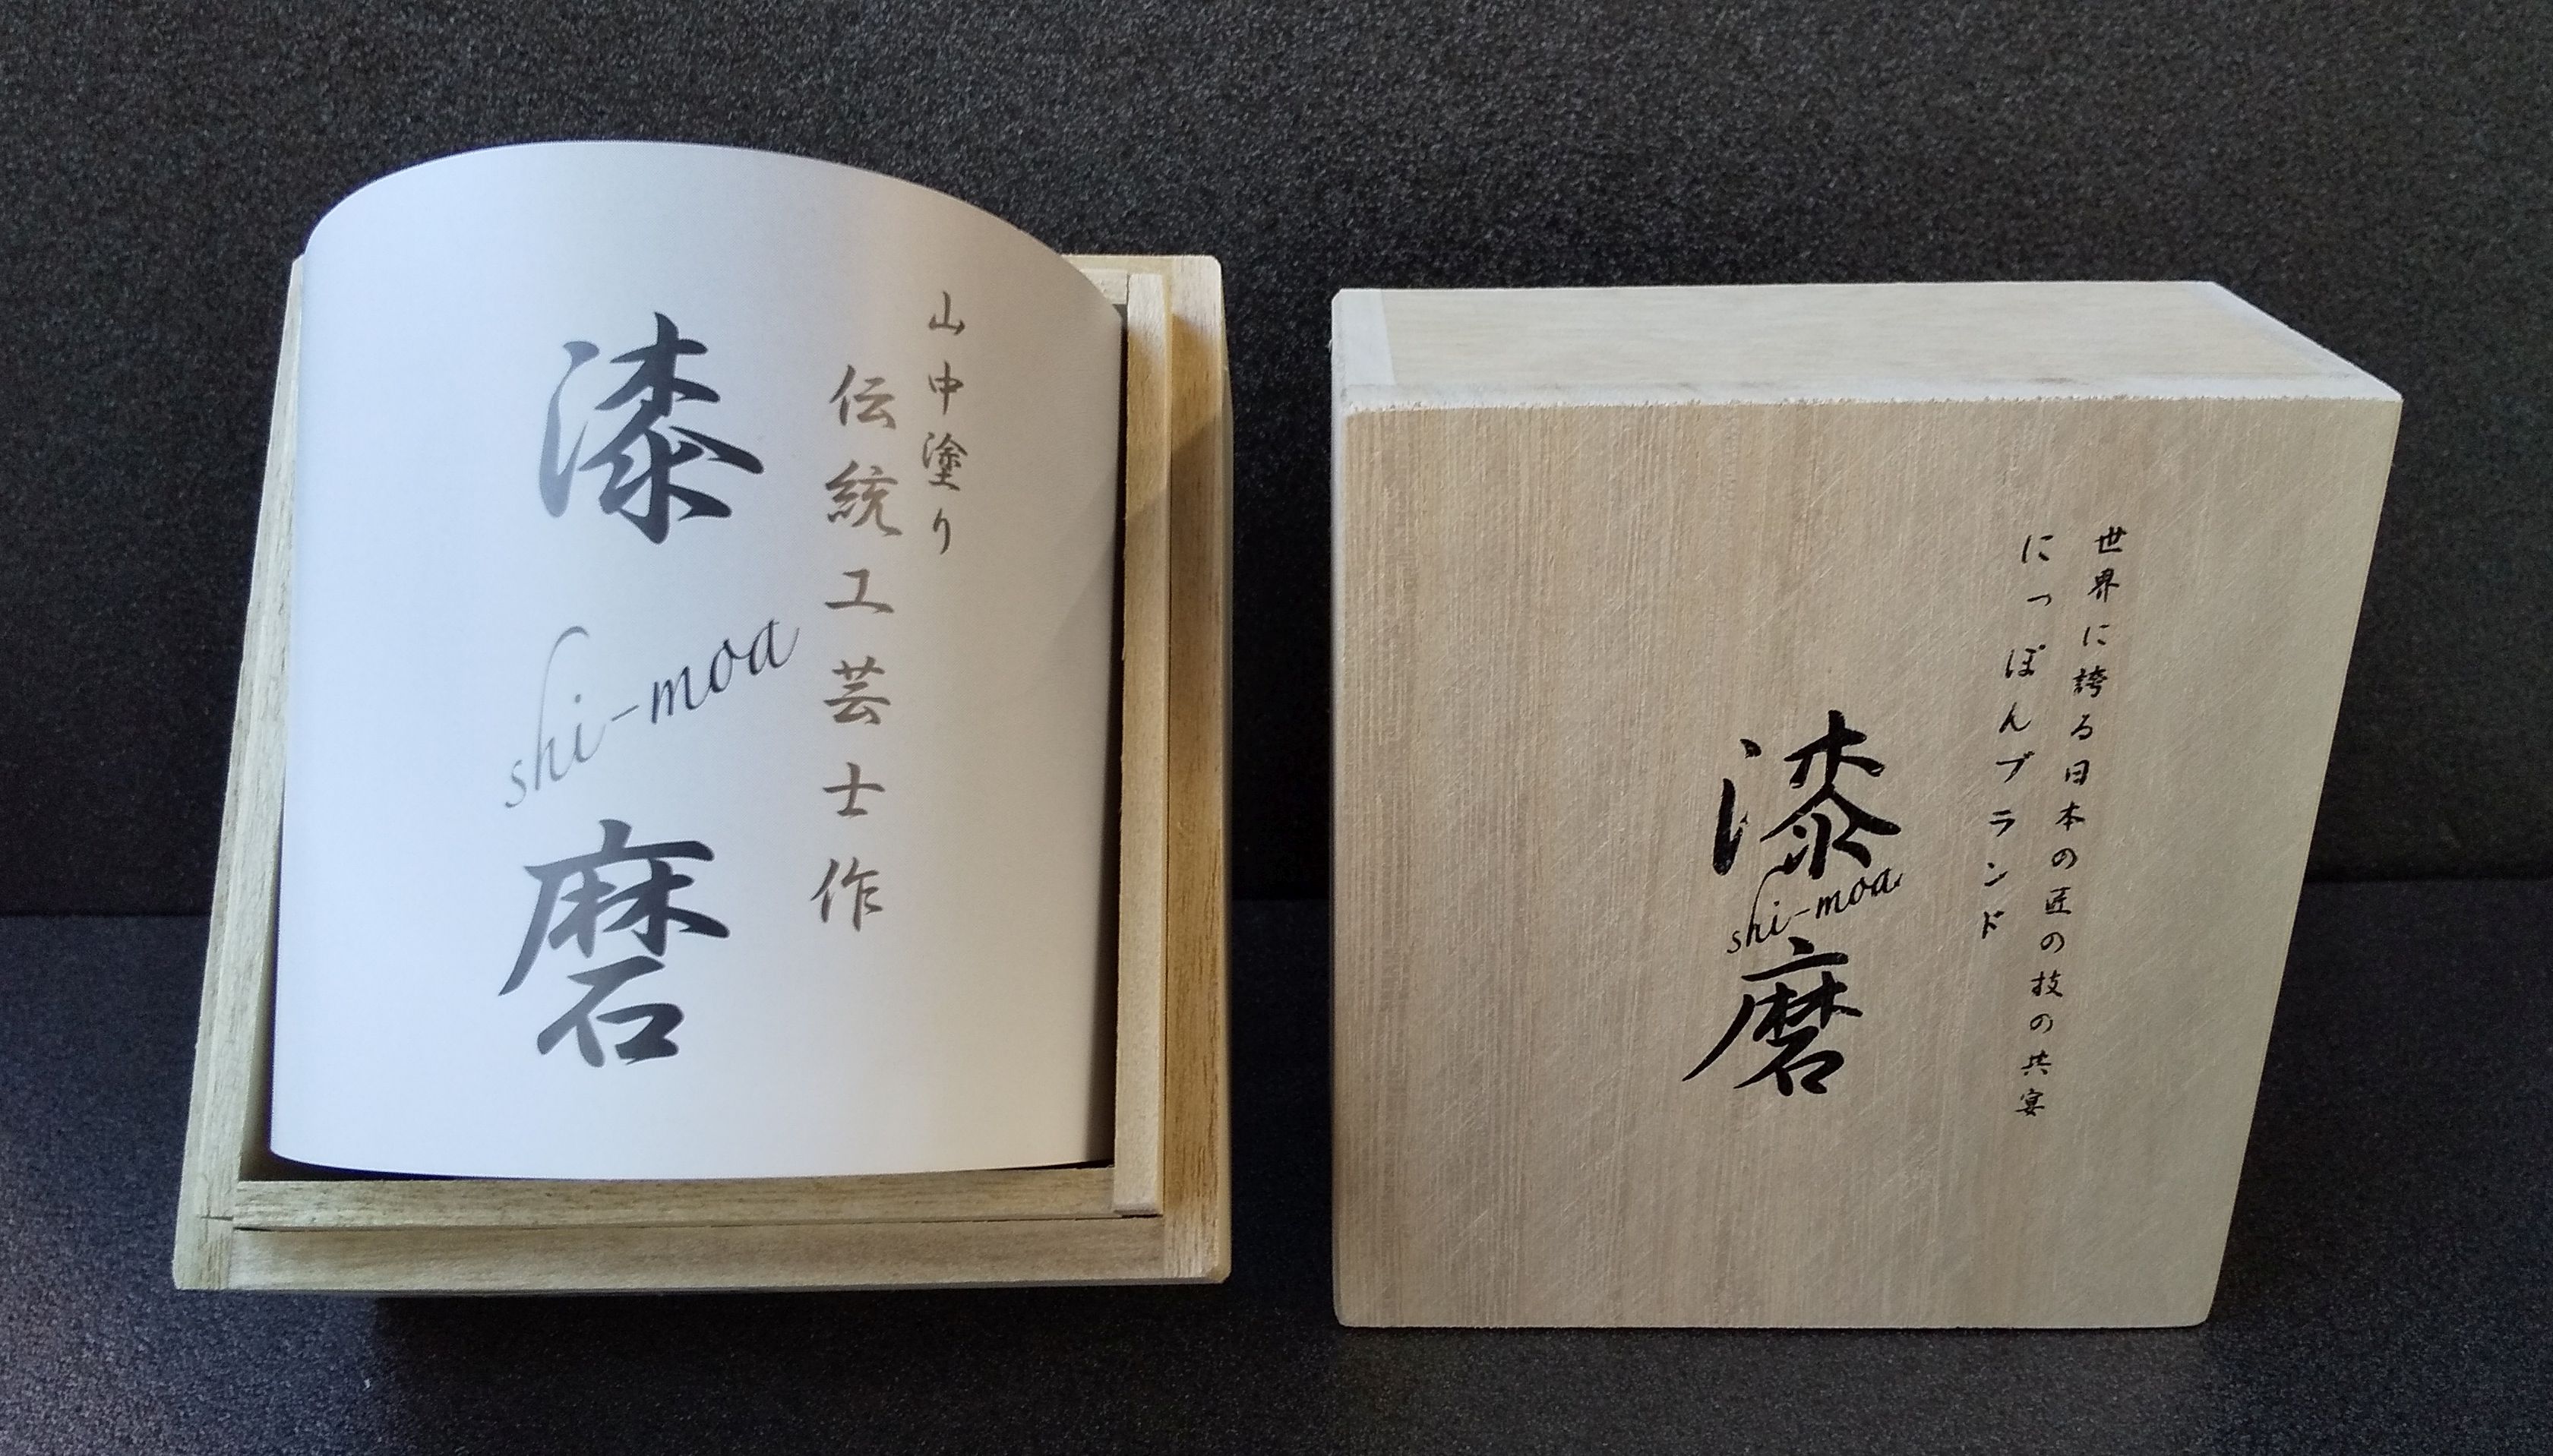 山中塗り
伝統工芸士作
漆
shi-moa
磨
世界に誇る日本の匠の技の共宴
にっぽんブランド
漆
shi-moa
磨